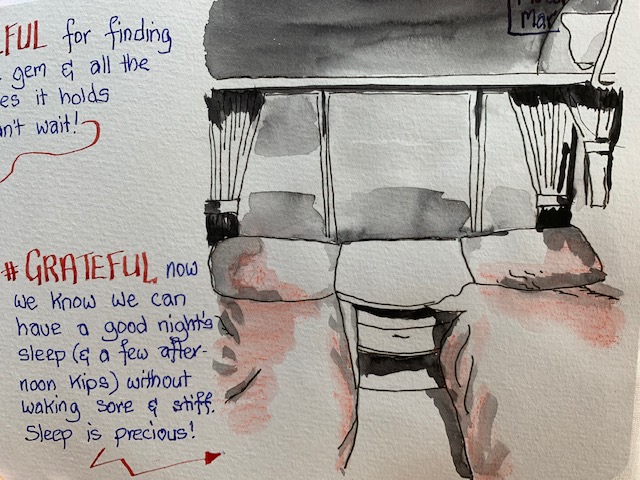 FUL for finding
gem & all the
es it holds
n't wait!
Mar
#GRATEFUL now
we know we can
have a good night's
sleep (& a few after-
noon kips) without
waking sore & stiff.
Sleep is precious!